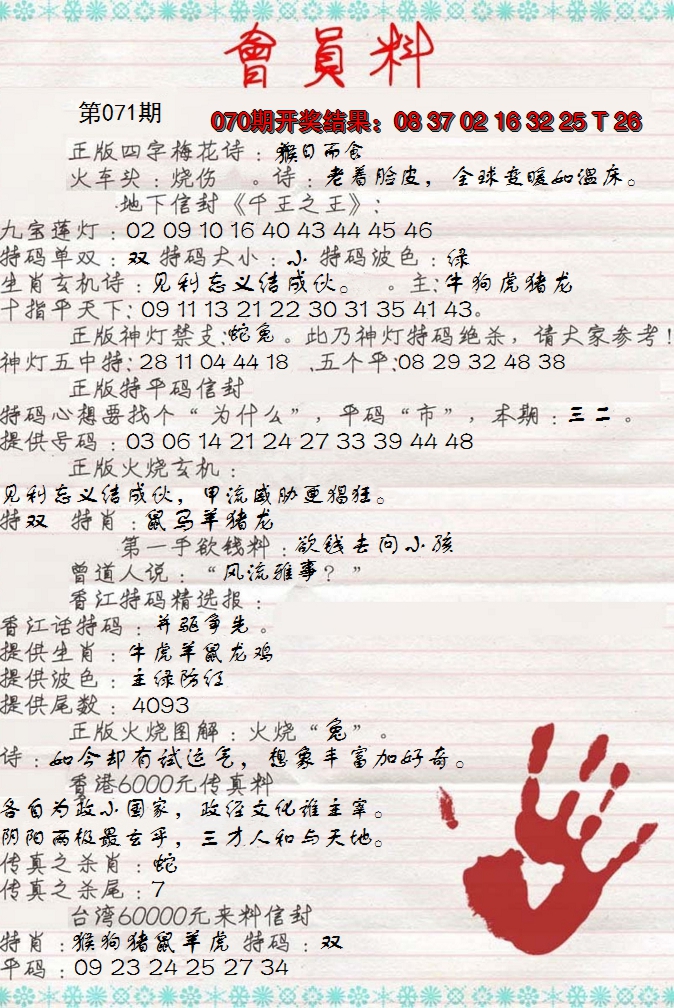 會員料
第071期
070期开奖结果：08 37 02 16 32 25 T 26
正版四字梅花诗：猴日而食
火车头：烧伤 。诗：老着脸皮，全球变暖如温床。
地下信封《千王之王》：
九宝莲灯：02 09 10 16 40 43 44 45 46
特码单双：双 特码大小：小 特码波色：绿
生肖玄机诗：见利忘义结成伙。 。主：牛狗虎猪龙
十指平天下：09 11 13 21 22 30 31 35 41 43。
正版神灯禁支：蛇兔。此乃神灯特码绝杀，请大家参考！
神灯五中特：28 11 04 44 18 .五个平：08 29 32 48 38
正版特平码信封
特码心想要找个“为什么”，平码“市”，本期：三二。
提供号码：03 06 14 21 24 27 33 39 44 48
正版火烧玄机：
见利忘义结成伙，甲流威胁更猖狂。
特双 特肖：鼠马羊猪龙
第一手欲钱料：欲钱去问小孩
曾道人说：“风流雅事？”
香江特码精选报：
香江话特码：并驱争先。
提供生肖：牛虎羊鼠龙鸡
提供波色：主绿防红
提供尾数：4093
正版火烧图解：火烧“兔”。
诗：如今却有试运气，想象丰富加好奇。
香港6000元传真料
各自为政小国家，政经文化谁主宰。
阴阳两极最玄乎，三才人和与天地。
传真之杀肖：蛇
传真之杀尾：7
台湾60000元来料信封
特肖：猴狗猪鼠羊虎 特码：双
平码：09 23 24 25 27 34